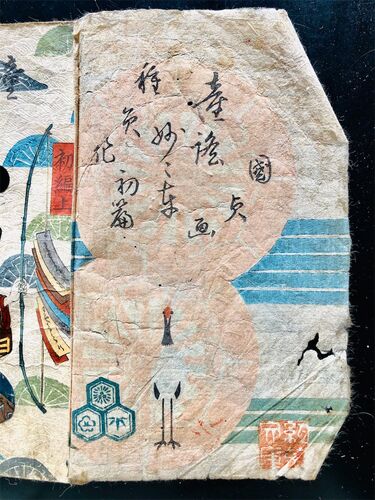 國貞画
童謡
妙々車
初篇
種員作
初編上